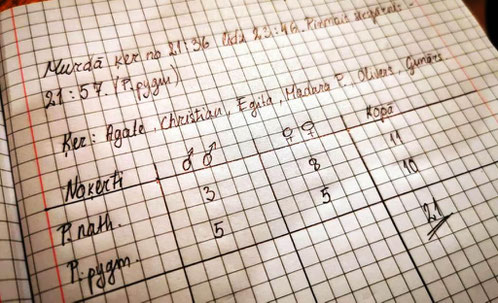 Murdā ķer no 21:36 līdz 22:46. Pirmais
21:57. (P.pygm)
Ķer: Agate, Christian, Egita, Madara P., Olivers, Gunārs
Noķerti ♂♂ ♀♀ Kopā
P. nath. 3 8 11
P. pygm. 5 5 10
21